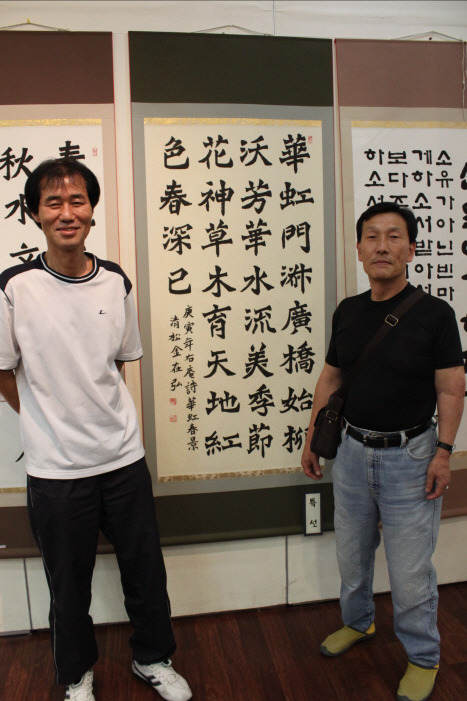 華虹門泝廣橋始柳
沃芳華水流美季節
花神草木育天地紅
色春深已
庚寅年右庵詩華虹春景
清松金在弘
특선
春
秋水文
소유가아닌빈마
게하소서
보다
하소